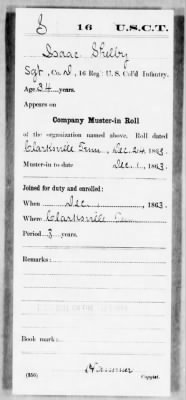 S | 16 | U.S.C.T.
Isaac Shelby
Sgt, Co. D, 16 Reg't U. S. Col'd Infantry.
Age 34 years.
Appears on
Company Muster-in Roll
of the organization named above. Roll dated
Clarksville Tenn, Dec. 24, 1863.
Muster-in to date Dec. 1, 1863.
Joined for duty and enrolled:
When Dec. 1, 1863.
Where Clarksville Ten
Period 3 years.
Remarks:
Book mark:
(356) Copyist.